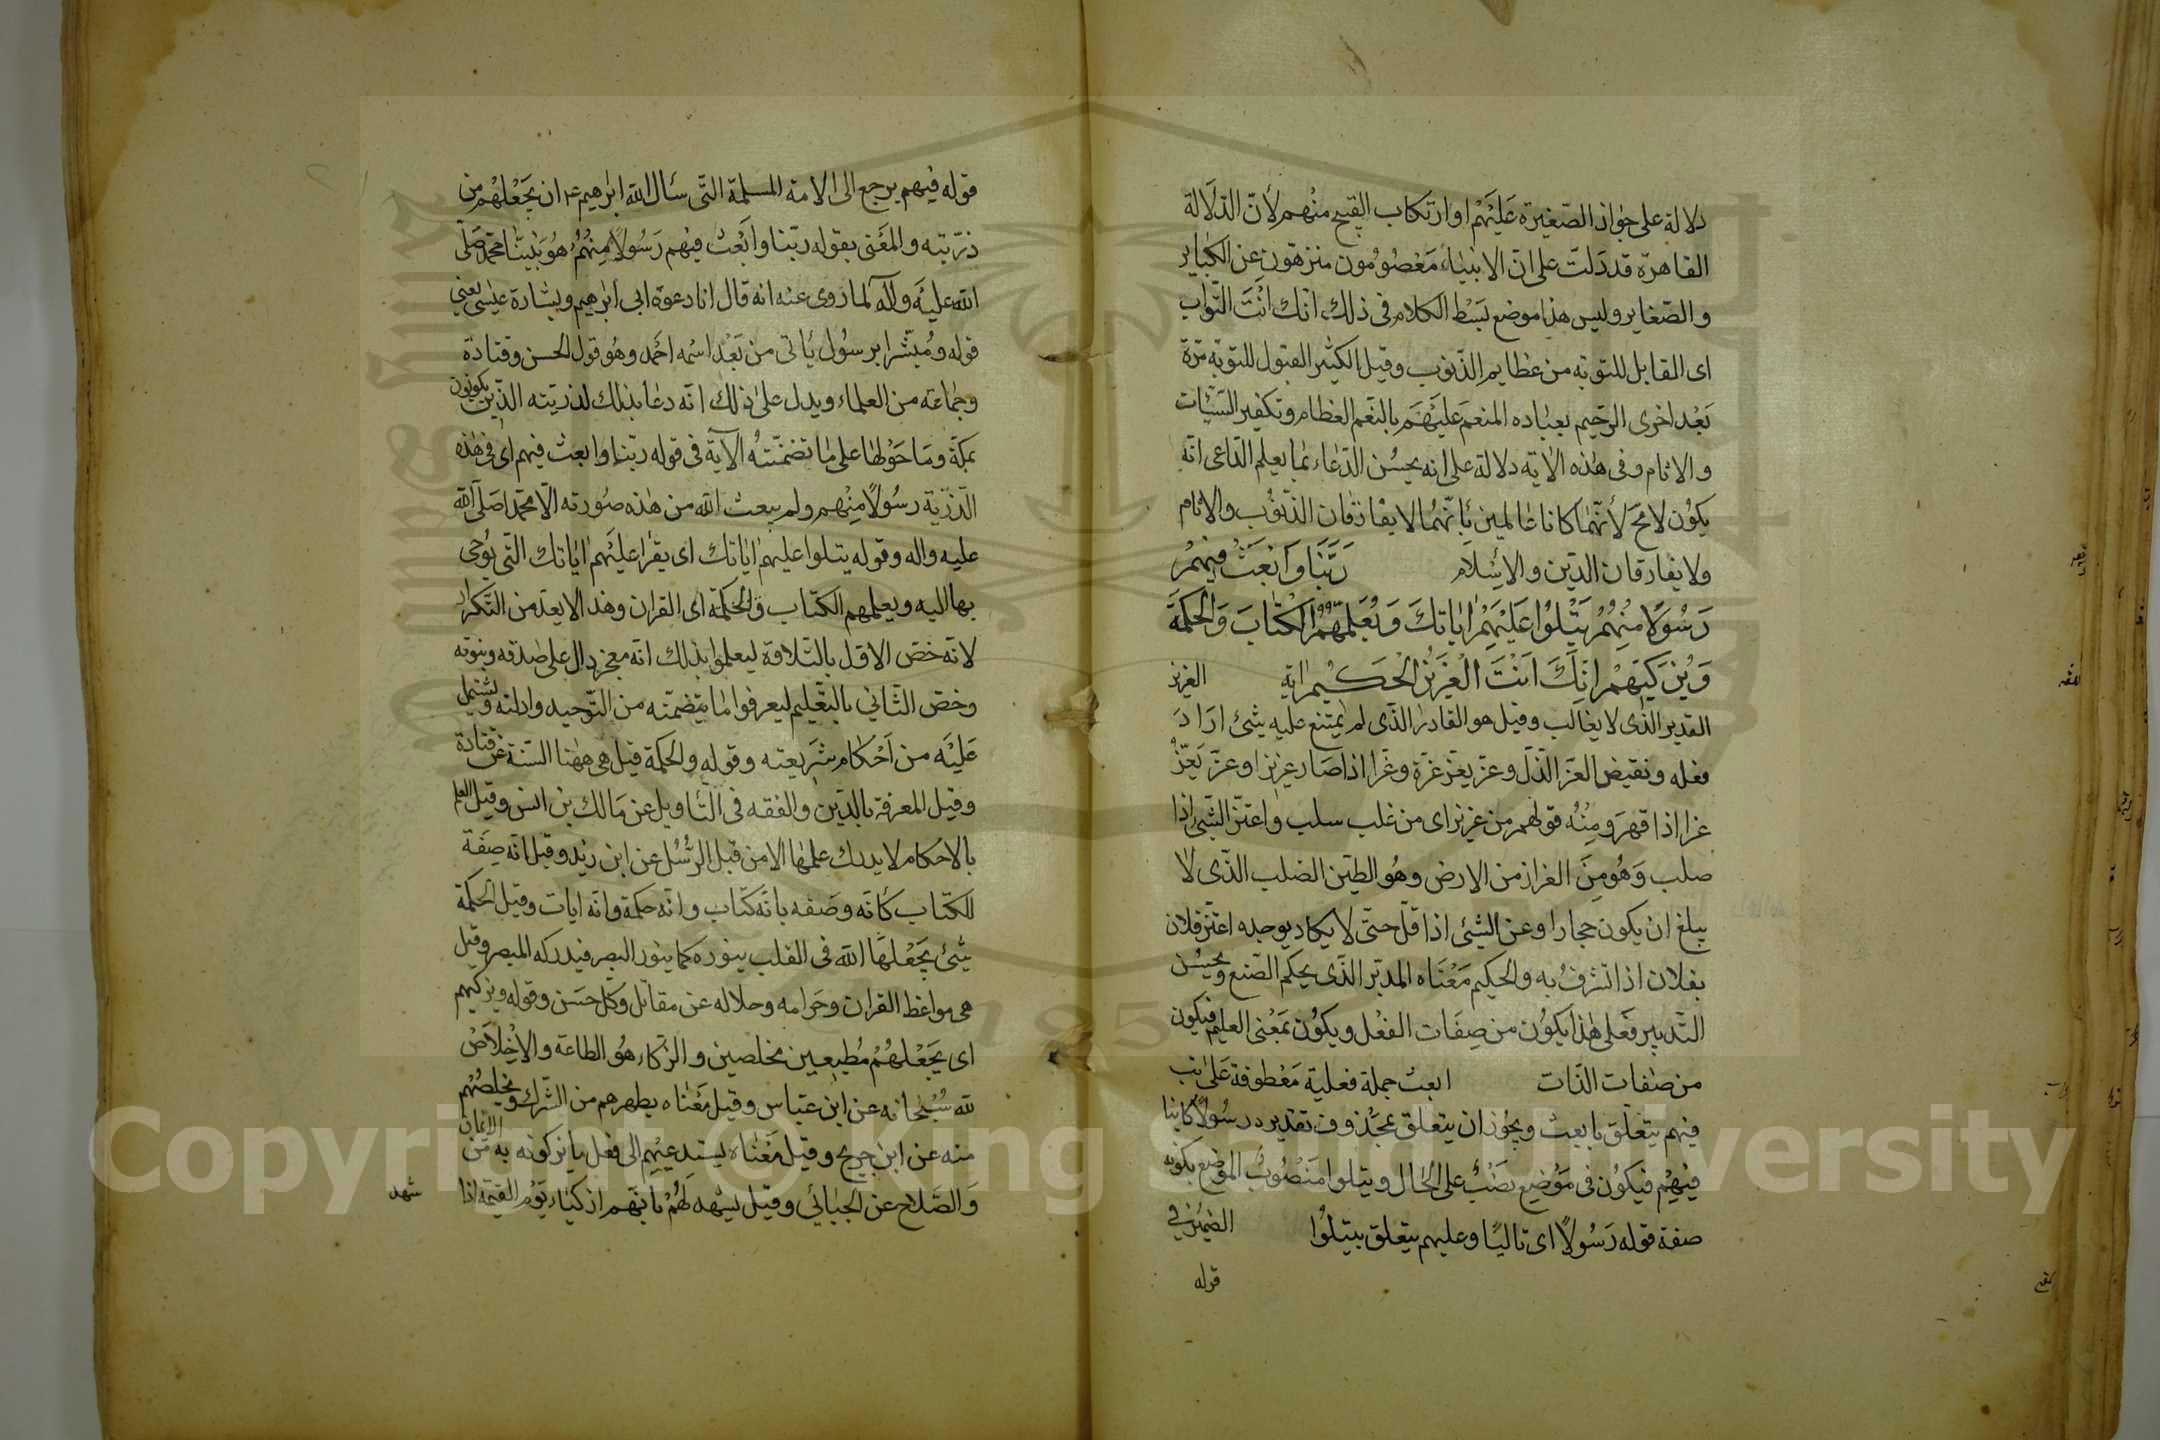 دلالة على جواز الصغيرة عليهم او ارتكاب القبيح منهم لأنّ الدّلالة
القاهرة قد دلّت على انّ الانبياء معصومون منزهون عن الكباير
والصّغاير وليس هذا موضع بسط الكلام فى ذلك انّك انت التّواب
اى القابل للتوبة من عظايم الذّنوب وقيل الكثير القبول للتوبة مرّة
بعد اخرى الرّحيم بعباده المنعم عليهم بالنّعم العظام وتكفير السّيّئات
والاثام وفى هذه الاية دلالة على انه يحسن الدّعاء بما يعلم الدّاعى انّه
يكون لا محة لأنّهما كانا عالمين بأنّهما لا يفارقان الذّنوب والاثام
ولا يفارقان الدّين والاسلام ربّنا وابعث فيهم
رسولا منهم يتلوا عليهم اياتك ويعلّمهم الكتاب والحكمة
ويزكّيهم انّك انت العزيز الحكيم اية العزيز
القدير الذى لا يغالب وقيل هو القادر الذى لم يمتنع عليه شئ اراد
فعله ونقيض العزّ الذّلّ وعزّ يعزّ عزة وعزا اذا صار عزيزا وعزّ يعزّ
عزا اذا قهر ومنه قولهم من عز بز اى من غلب سلب واعتزّ الشّئ اذا
صلب وهو من العزاز من الارض وهو الطّين الصّلب الذّى لا
يبلغ ان يكون حجارا وعن الشّئ اذا قلّ حتّى لا يكاد يوجد اعتزّ فلان
بفلان اذا تشرّف به والحكيم معناه المدبّر الذّى يحكم الصّنع ويحسن
التّدبير فعلى هذا يكون من صفات الفعل ويكون بمعنى العليم فيكون
من صفات الذّات ابعث جملة فعلية معطوفة على تب
فيهم يتعلّق بابعث ويجوز ان يتعلق بمحذوف تقديره رسولا كاينا
فيهم فيكون فى موضع نصب على الحال ويتلوا منصوب الموضع بكونه
صفة قوله رسولا اى تاليا وعليهم يتعلق بيتلوا الضمير فى
قوله
قوله فيهم يرجع الى الامة المسلمة التّى سئال الله ابرهيم ع ان يجعلهم من
ذرّيته والمعنى بقوله ربّنا وابعث فيهم رسولا منهم هو نبيّنا محمد صلّى
الله عليه وآله لما روى عنه انه قال انا دعوة ابى ابرهيم وبشارة عيسى يعنى
قوله ومبشرا برسول يأتى من بعد اسمه احمد وهو قول الحسن وقتادة
وجماعة من العلماء ويدل على ذلك انّه دعا بذلك لذريته الذّين يكونون
بمكة وما حولها على ما تضمّنته الآية فى قوله ربّنا وابعث فيهم اى فى هذه
الذّرّية رسولا منهم ولم يبعث الله من هذه صورته الّا محمّدا صلى الله
عليه واله وقوله يتلوا عليهم اياتك اى يقرا عليهم اياتك التّى يوحى
بها اليه ويعلمهم الكتاب والحكمة اى القران وهذا لا يعدّ من التّكرار
لانه خصّ الاوّل بالتّلاوة ليعلموا بذلك انّه معجز دال على صدقه ونبوته
وخصّ الثّانى بالتّعليم ليعرفوا ما يتضمّنه من التّوحيد وادلته ويشتمل
عليه من احكام شريعته وقوله والحكمة قيل هى ههنا السّنة عن قتادة
وقيل المعرفة بالدّين والفقه فى التّاويل عن مالك بن انس وقيل العلم
بالاحكام لا يدرك علمها الا من قبل الرّسل عن ابن زيد وقيل انّه صفة
للكتاب كأنّه وصفه بانّه كتاب وانّه حكمة وانّه ايات وقيل الحكمة
شئ يجعلها الله فى القلب ينوره كما ينور البصر فيدركه المبصر وقيل
هى مواعظ القران وحرامه وحلاله عن مقاتل وكلّ حسن وقوله ويزكيهم
اى يجعلهم مطيعين مخلصين والزّكاء هو الطاعة والاخلاص
لله سبحانه عن ابن عباس وقيل معناه يطهرهم من الشّرك ويخلصهم
منه عن ابن جريج وقيل معناه يستدعيهم الى فعل ما يزكون به من الايمان
والصّلاح عن الجبائى وقيل يشهد لهم بأنّهم ازكياء يوم القيمة اذا
شهد
Copyright © King Saud University